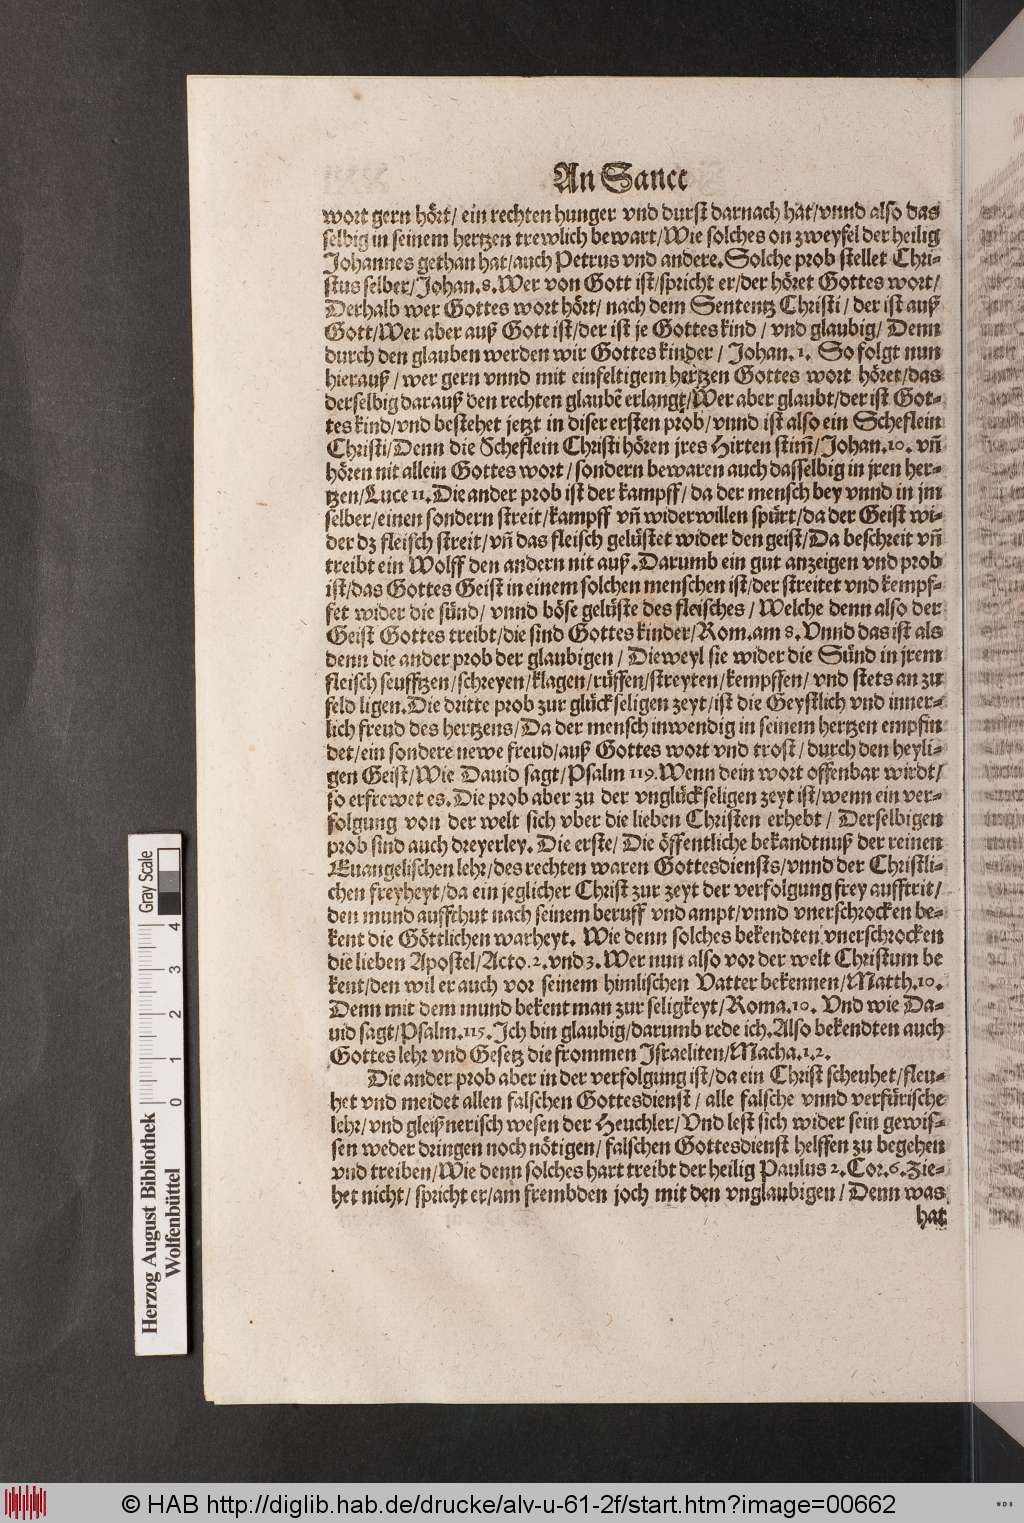 An Sanct
wort gern hört/ ein rechten hunger vnd durst darnach hat/vnnd also das
selbig in seinem hertzen trewlich bewart/Wie solches on zweyfel der heilig
Johannes gethan hat/auch Petrus vnd andere. Solche prob stellet Chri-
stus selber/Johan. 8. Wer von Gott ist/spricht er/der höret Gottes wort/
Derhalb wer Gottes wort hört/ nach dem Sententz Christi/ der ist auß
Gott/Wer aber auß Gott ist/der ist je Gottes kind/ vnd glaubig/ Denn
durch den glauben werden wir Gottes kinder/ Johan. 1. So folgt nun
hierauß/ wer gern vnnd mit einfeltigem hertzen Gottes wort höret/das
derselbig darauß den rechten glaubẽ erlangt/Wer aber glaubt/der ist Got-
tes kind/vnd bestehet jetzt in diser ersten prob/vnnd ist also ein Scheflein
Christi/Denn die Scheflein Christi hören jres Hirten stim̃/Johan. 10. vñ
hören nit allein Gottes wort/ sondern bewaren auch dasselbig in jren her-
tzen/Luce 11. Die ander prob ist der kampff/ da der mensch bey vnnd in jm
selber/einen sondern streit/kampff vñ widerwillen spürt/da der Geist wi-
der dz fleisch streit/vñ das fleisch gelüstet wider den geist/Da beschreit vñ
treibt ein Wolff den andern nit auß. Darumb ein gut anzeigen vnd prob
ist/das Gottes Geist in einem solchen menschen ist/der streitet vnd kempf-
fet wider die sünd/ vnnd böse gelüste des fleisches/ Welche denn also der
Geist Gottes treibt/die sind Gottes kinder/Rom. am 8. Vnnd das ist als
denn die ander prob der glaubigen/ Dieweyl sie wider die Sünd in jrem
fleisch seufftzen/schreyen/klagen/rüffen/streyten/kempffen/ vnd stets an zu
feld ligen. Die dritte prob zur glückseligen zeyt/ist die Geystlich vnd inner-
lich freud des hertzens/Da der mensch inwendig in seinem hertzen empfin
det/ein sondere newe freud/auß Gottes wort vnd trost/ durch den heyli-
gen Geist/Wie Dauid sagt/Psalm 119. Wenn dein wort offenbar wirdt/
so erfrewet es. Die prob aber zu der vnglückseligen zeyt ist/wenn ein ver-
folgung von der welt sich vber die lieben Christen erhebt/ Derselbigen
prob sind auch dreyerley. Die erste/ Die öffentliche bekandtnuß der reinen
Euangelischen lehr/des rechten waren Gottesdiensts/vnnd der Christli-
chen freyheyt/da ein jeglicher Christ zur zeyt der verfolgung frey aufftrit/
den mund auffthut nach seinem beruff vnd ampt/vnnd vnerschrocken be-
kent die Göttlichen warheyt. Wie denn solches bekendten vnerschrocken
die lieben Apostel/Acto. 2. vnd 3. Wer nun also vor der welt Christum be
kent/den wil er auch vor seinem himlischen Vatter bekennen/Matth. 10.
Denn mit dem mund bekent man zur seligkeyt/Roma. 10. Vnd wie Da-
uid sagt/Psalm. 115. Ich bin glaubig/darumb rede ich. Also bekendten auch
Gottes lehr vnd Gesetz die frommen Israeliten/Macha. 1. 2.
Die ander prob aber in der verfolgung ist/da ein Christ scheuhet/fleu-
het vnd meidet allen falschen Gottesdienst/ alle falsche vnnd verfürische
lehr/vnd gleißnerisch wesen der Heuchler/Vnd lest sich wider sein gewis-
sen weder dringen noch nötigen/ falschen Gottesdienst helffen zu begehen
vnd treiben/Wie denn solches hart treibt der heilig Paulus 2. Cor. 6. Zie-
het nicht/ spricht er/am frembden joch mit den vnglaubigen/ Denn was
hat
Gray Scale
0 1 2 3 4
Herzog August Bibliothek
Wolfenbüttel
© HAB http://diglib.hab.de/drucke/alv-u-61-2f/start.htm?image=00662